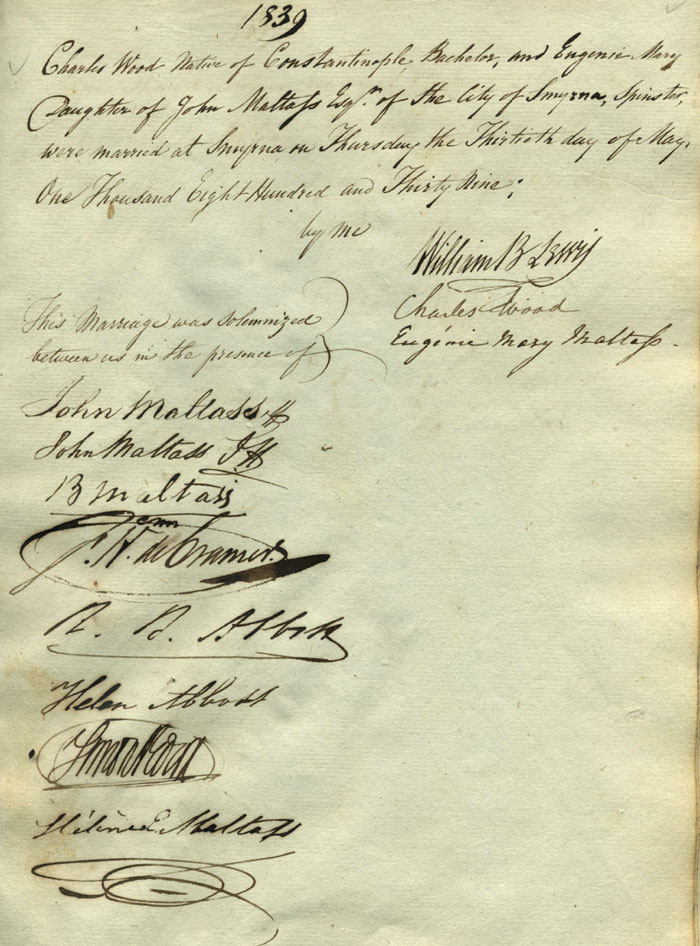 1839
Charles Wood Native of Constantinople, Bachelor, and Eugenie Mary
Daughter of John Maltass Esqr. of the City of Smyrna, Spinster,
were married at Smyrna on Thursday the Thirtieth day of May,
One Thousand Eight Hundred and Thirty Nine;
by me
William B Lewis
Charles Wood
Eugénie Mary Maltass.
This Marriage was solemnized
between us in the presence of
John Maltass
John Maltass
B Maltass
de Cramer
R. B. Abbott
Helen Abbott
Hélène E Maltass